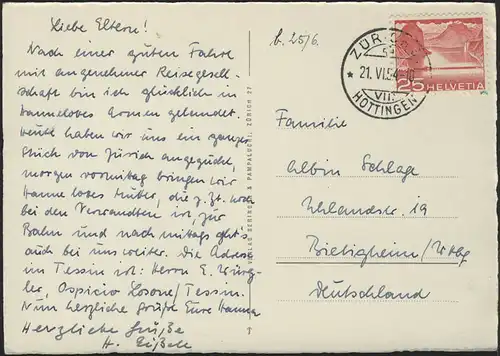 Liebe Eltern!
Nach einer guten Fahrt
mit angenehmer Reisegesell-
schaft bin ich glücklich in
Hanneloves Armen gelandet.
Heute haben wir uns ein ganzes
Stück von Zürich angeguckt,
morgen vormittag bringen wir
Hannelores Mutter, die z. Zt. noch
bei den Verwandten ist, zur
Bahn und nachmittags geht's
auch bei uns weiter. Die Adresse
im Tessin ist: Herrn E. Würg-
ler, Ospicio Losone/Tessin.
Nun herzliche Grüße Eure Hanna
Herzliche Grüße
H.
b. 25/6.
ZÜRICH
* 21. VI. 54
VIII
HOTTINGEN
25 HELVETIA
Familie
Albin Schlage
Uhlandstr. 19
Bietigheim/Wttbg
Deutschland
& PAMPALUCHI, ZÜRICH 27